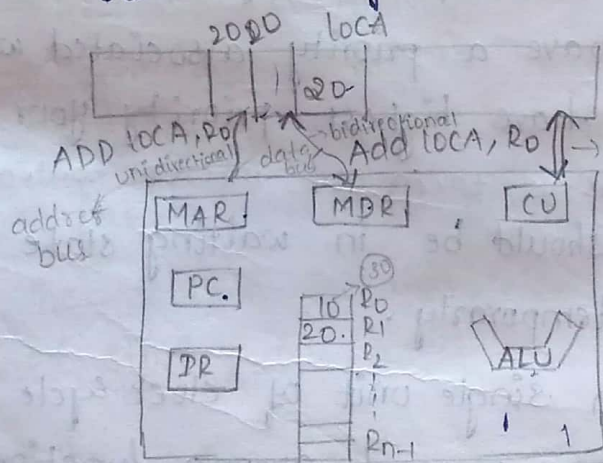 2020 LOCA
1 20
ADD LOCA, R0 unidirectional data bus bidirectional Add LOCA, R0
address bus
MAR MDR CU
PC. 30
10 R0
20. R1
R2
DR ALU
Rn-1